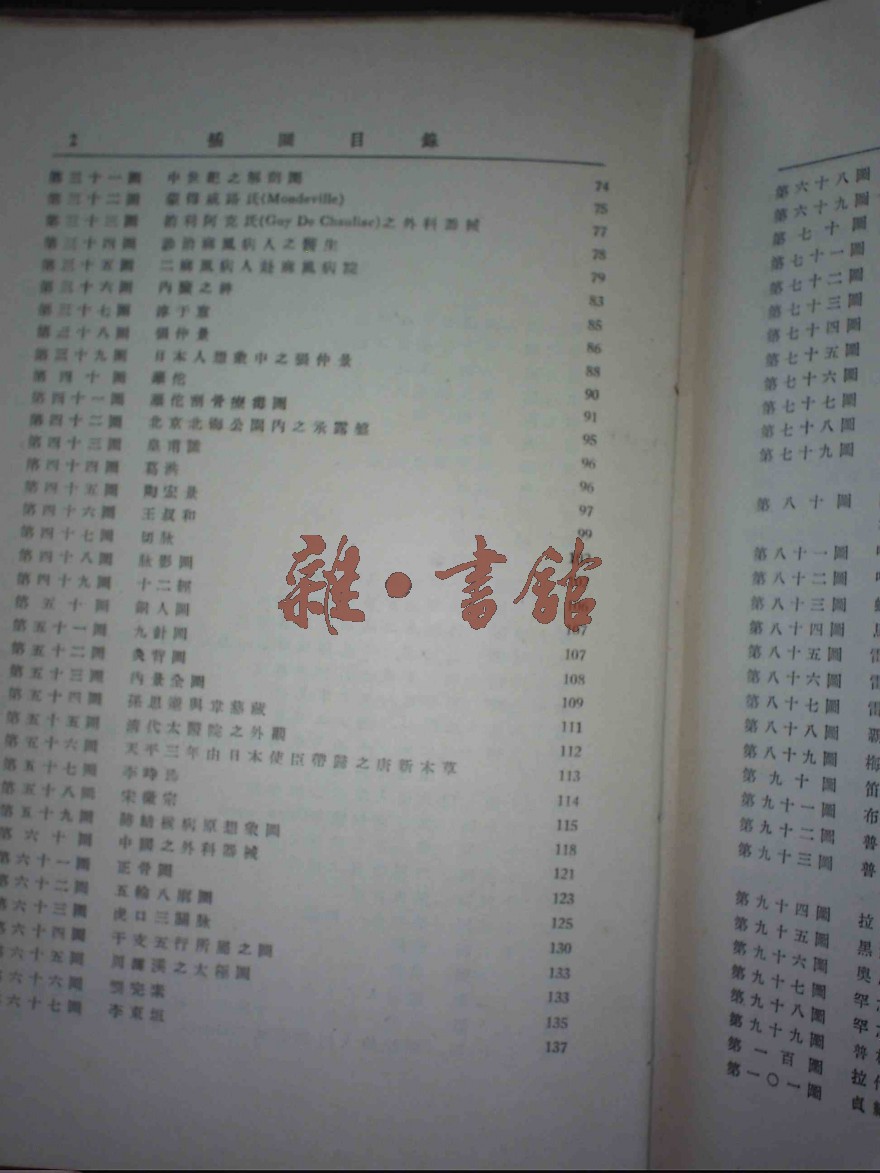 2 插圖目錄
第三十一圖 中世紀之解剖圖 74
第三十二圖 蒙得威路氏(Mondeville) 75
第三十三圖 韵利阿克氏(Guy De Chauliac)之外科器械 77
第三十四圖 診治麻風病人之醫生 78
第三十五圖 二麻風病人赴麻風病院 79
第三十六圖 內臟之神 83
第三十七圖 淳于意 85
第三十八圖 張仲景 86
第三十九圖 日本人想象中之張仲景 88
第四十圖 華佗 90
第四十一圖 華佗割骨療毒圖 91
第四十二圖 北京北海公園內之承露盤 95
第四十三圖 皇甫謐 96
第四十四圖 葛洪 96
第四十五圖 陶宏景 97
第四十六圖 王叔和 99
第四十七圖 切脉
第四十八圖 脉影圖
第四十九圖 十二經 106
第五十圖 銅人圖 107
第五十一圖 九針圖 107
第五十二圖 灸背圖 108
第五十三圖 內景全圖 109
第五十四圖 孫思邈與韋慈藏 111
第五十五圖 清代太醫院之外觀 112
第五十六圖 天平三年由日本使臣帶歸之唐新本草 113
第五十七圖 李時珍 114
第五十八圖 宋徽宗 115
第五十九圖 肺結核病原想象圖 118
第六十圖 中國之外科器械 121
第六十一圖 正骨圖 123
第六十二圖 五輪八廓圖 125
第六十三圖 虎口三關脉 130
第六十四圖 干支五行所屬之圖 133
第六十五圖 周濂溪之太極圖 133
第六十六圖 劉完素 135
第六十七圖 李東垣 137
雜·書館
第六十八圖
第六十九圖
第七十圖
第七十一圖
第七十二圖
第七十三圖
第七十四圖
第七十五圖
第七十六圖
第七十七圖
第七十八圖
第七十九圖
第八十圖
第八十一圖
第八十二圖
第八十三圖
第八十四圖
第八十五圖 雷
第八十六圖 雷
第八十七圖 雷
第八十八圖
第八十九圖 梅
第九十圖 笛
第九十一圖 布
第九十二圖 普
第九十三圖 普
第九十四圖 拉
第九十五圖 黑
第九十六圖 奧
第九十七圖 罕
第九十八圖 罕
第九十九圖 魯
第一百圖 拉
第一〇一圖 貞